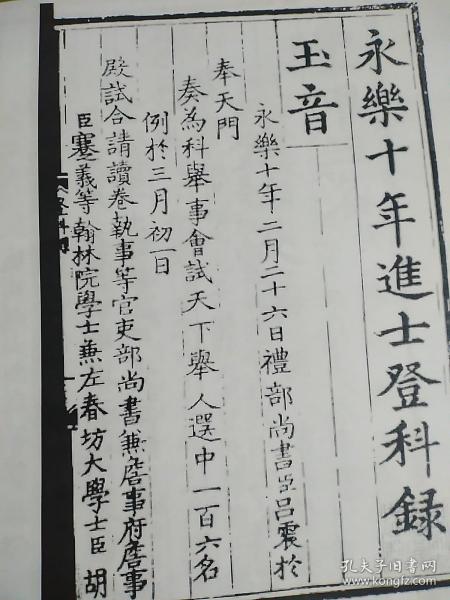 永樂十年進士登科錄
玉音
永樂十年二月二十六日禮部尚書臣呂震於
奉天門
奏為科舉事會試天下舉人選中一百六名
例於三月初一日
殿試合請讀卷執事等官吏部尚書兼詹事府詹事
臣蹇義等翰林院學士兼左春坊大學士臣胡
孔夫子旧书网
www.kongfz.com